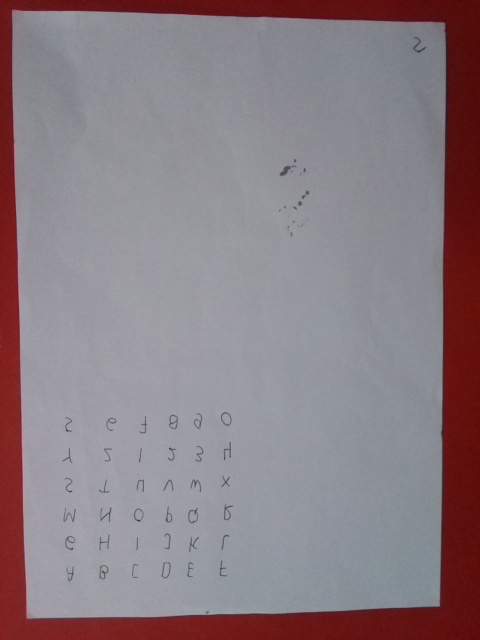 A B C D E F
G H I J K L
M N O P Q R
S T U V W X
Y Z 1 2 3 4
5 6 7 8 9 0
2